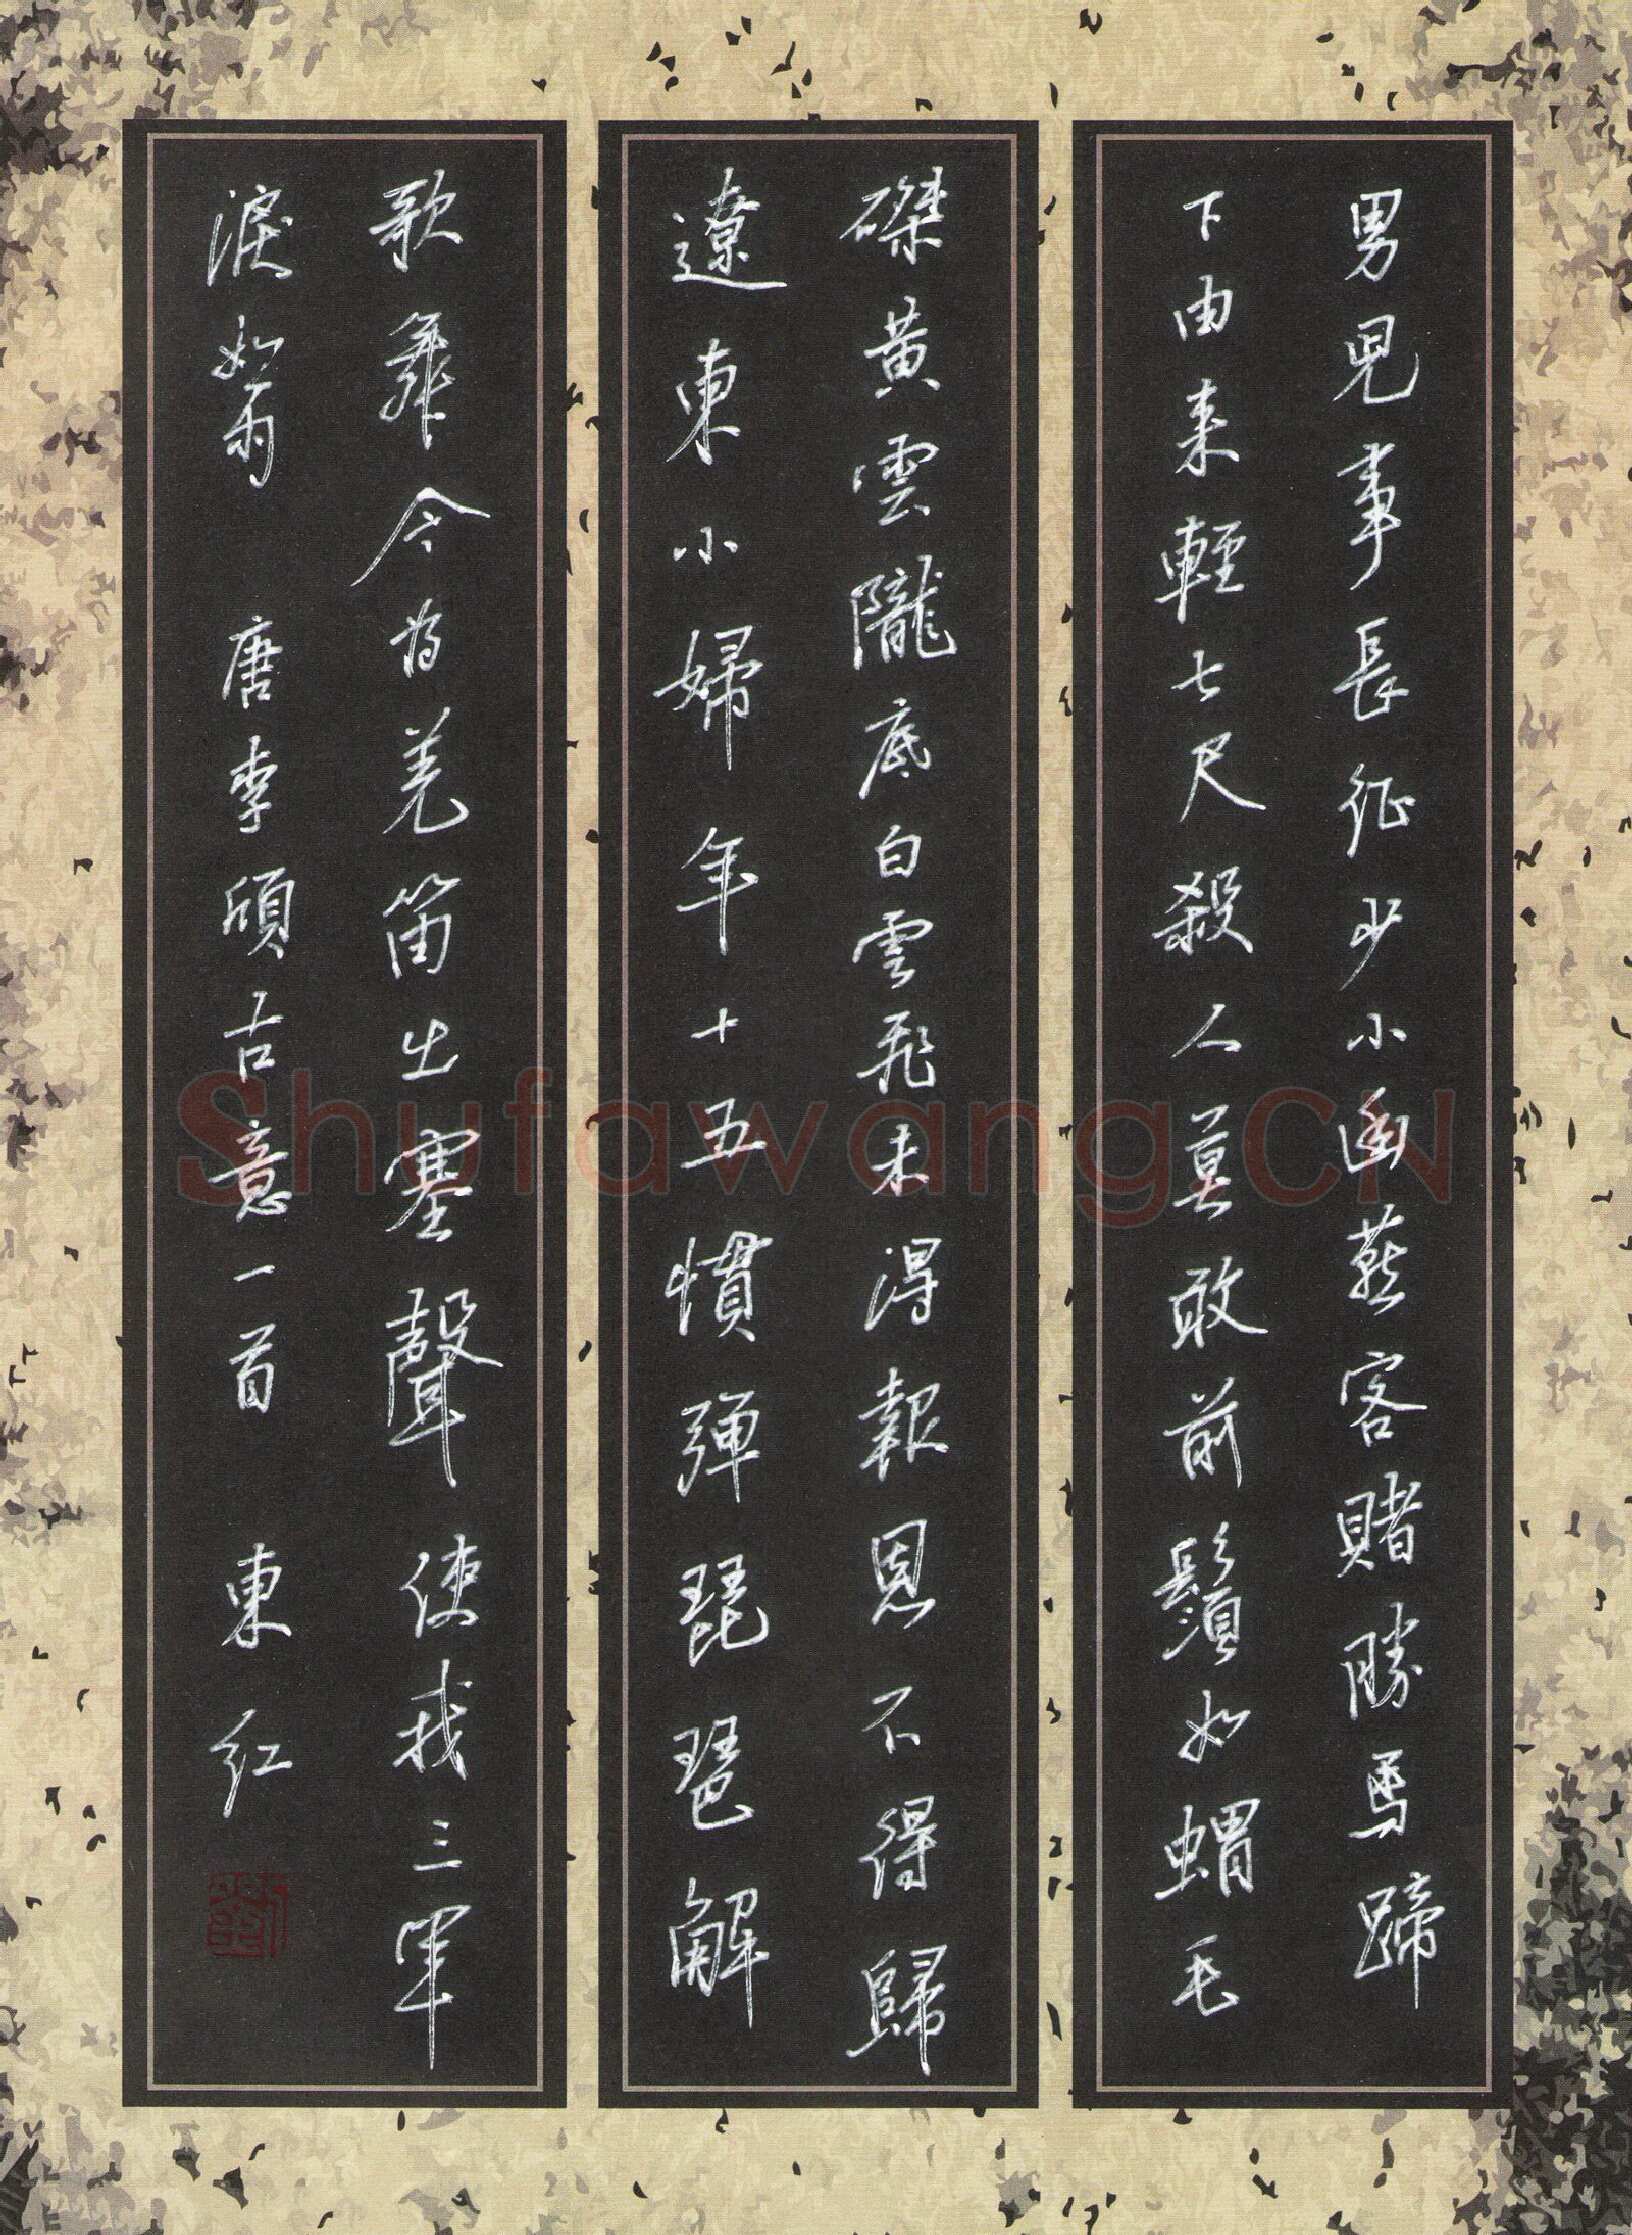 男兒事長征少小幽燕客賭勝馬蹄
下由来輕七尺殺人莫敢前鬚如蝟毛
磔黄雲隴底白雲飛未得報恩不得歸
遼東小婦年十五慣彈琵琶解
歌舞今為羌笛出塞聲使我三軍
淚如雨 唐李頎古意一首 東紅
Shufawang.CN